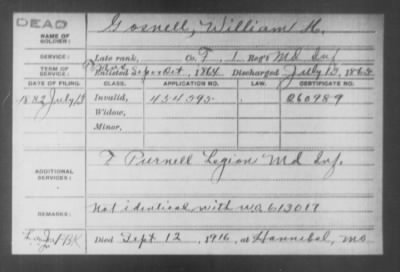 DEAD
NAME OF SOLDIER: Gosnell, William H.
SERVICE: Late rank, Co. F, 1 Reg't Md Inf
TERM OF SERVICE: Enlisted Oct, 1864 Discharged July 1865
DATE OF FILING. CLASS. APPLICATION NO. LAW. CERTIFICATE NO.
1882 July Invalid, 454595 260989
Widow,
Minor,
ADDITIONAL SERVICES: F Purnell Legion Md Inf.
REMARKS: Not identical with wo 613017
Died Sept 12, 1916, at Hannibal, Mo